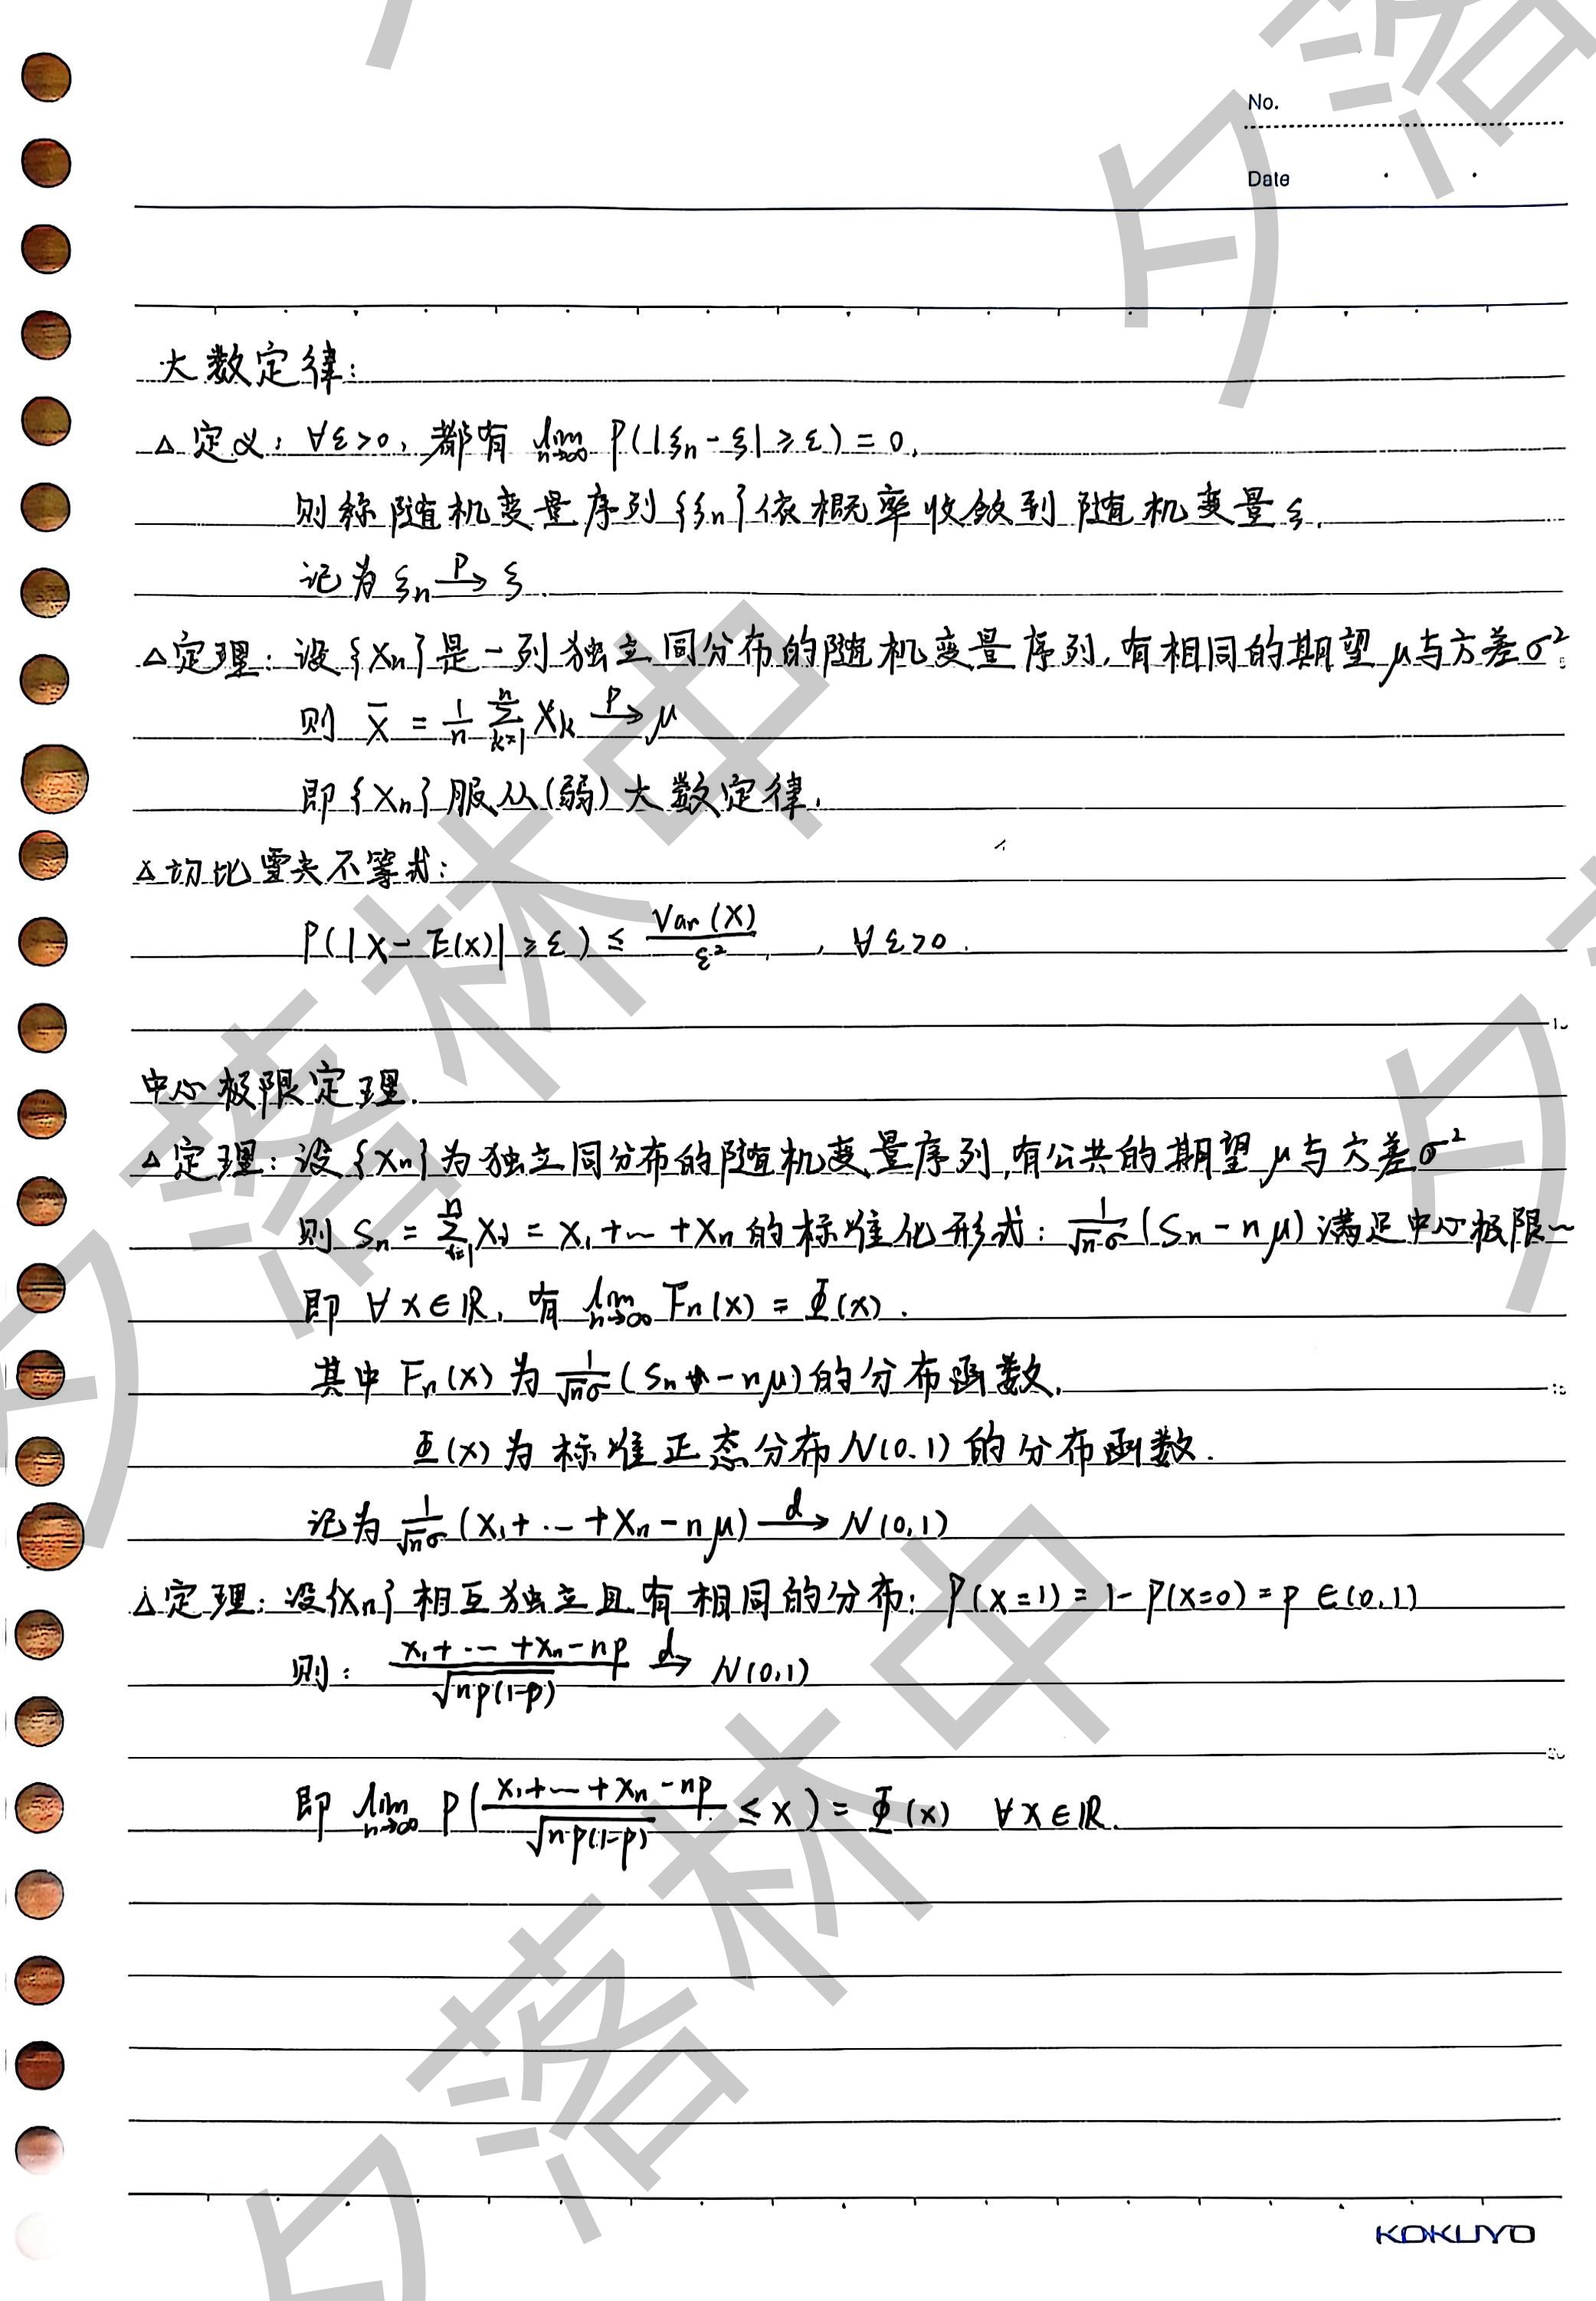 No.
Date
大数定律:
△定义: ∀ε>0, 都有 lim n→∞ P(|ξn-ξ|≥ε)=0,
则称随机变量序列{ξn}依概率收敛到随机变量ξ.
记为 ξn P→ ξ.
△定理: 设{Xn}是一列独立同分布的随机变量序列,有相同的期望μ与方差σ²
则 X̄ = 1/n Σ(k=1, n) Xk P→ μ
即{Xn}服从(弱)大数定律.
△切比雪夫不等式:
P(|X-E(X)|≥ε) ≤ Var(X)/ε², ∀ε>0.
中心极限定理.
△定理: 设{Xn}为独立同分布的随机变量序列,有公共的期望μ与方差σ²
则 Sn = Σ(i=1, n) Xi = X₁+…+Xn 的标准化形式: 1/(√n σ) (Sn-nμ) 满足中心极限~
即 ∀x∈ℝ, 有 lim n→∞ Fn(x) = Φ(x).
其中 Fn(x) 为 1/(√n σ) (Sn-nμ) 的分布函数.
Φ(x) 为标准正态分布N(0,1)的分布函数.
记为 1/(√n σ) (X₁+…+Xn-nμ) d→ N(0,1)
△定理: 设{Xn}相互独立且有相同的分布: P(X=1)=1-P(X=0)=p∈(0,1)
则: (X₁+…+Xn-np)/√(np(1-p)) d→ N(0,1)
即 lim n→∞ P((X₁+…+Xn-np)/√(np(1-p)) ≤ x) = Φ(x) ∀x∈ℝ.
KOKUYO
夕落林中
夕落林中
夕落
夕